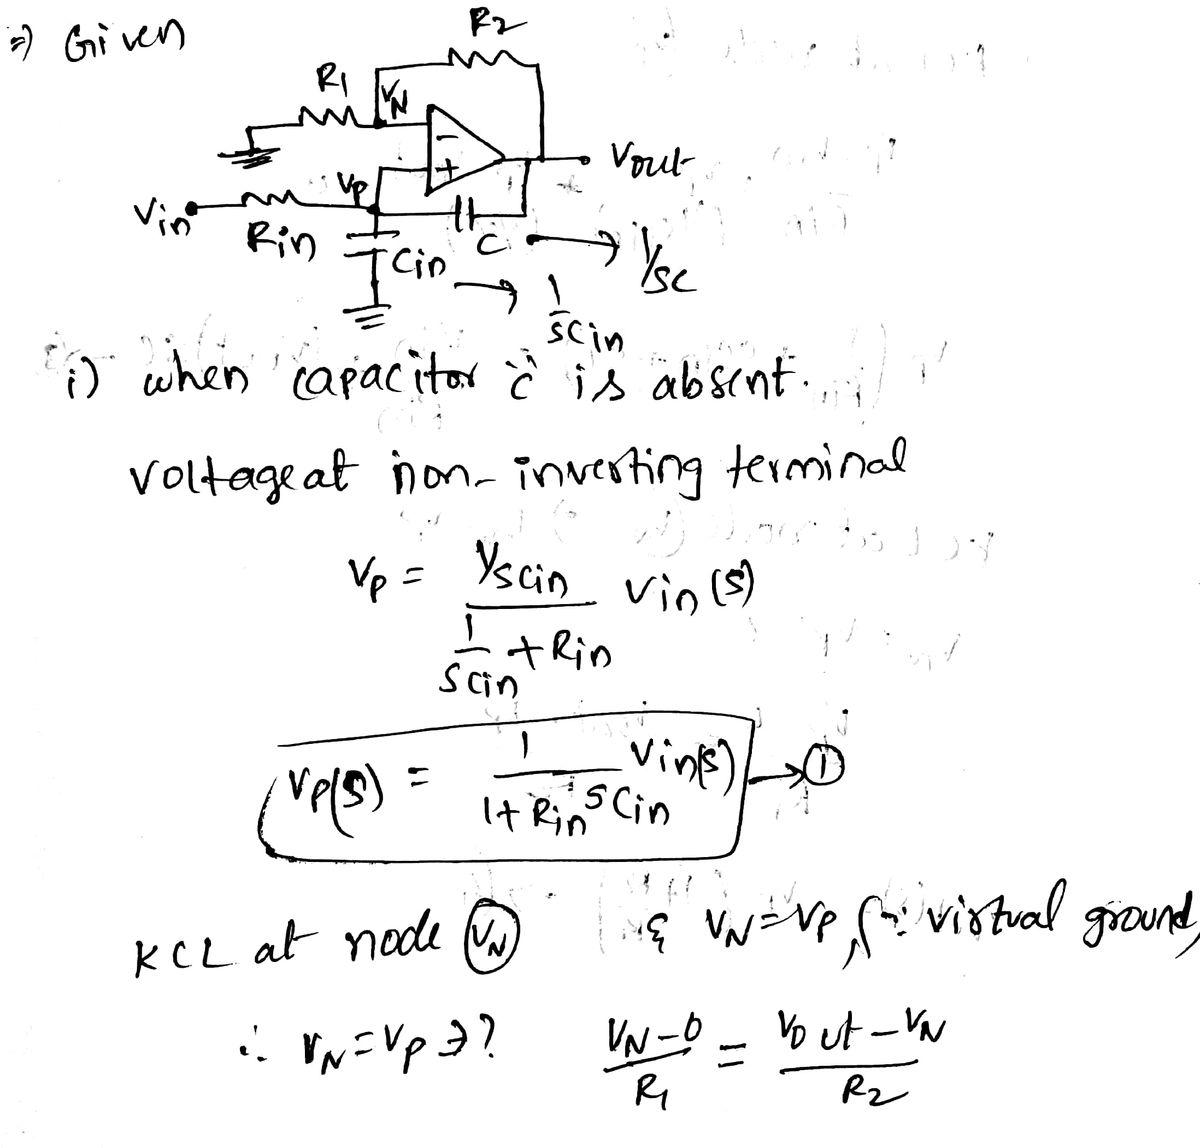 ⇒ Given
R2
R1
VN
-
+
Vout
Vp
Vin
Rin
Cin
C → 1/sC
→ 1/sCin
i) when capacitor "c" is absent.
Voltage at non-inverting terminal
Vp = (1/sCin) / (1/sCin + Rin) Vin(s)
Vp(s) = 1 / (1 + Rin s Cin) Vin(s) → ①
KCL at node VN & VN = VP {∵ virtual ground,
∴ VN = Vp ∋? (VN - 0)/R1 = (Vout - VN)/R2